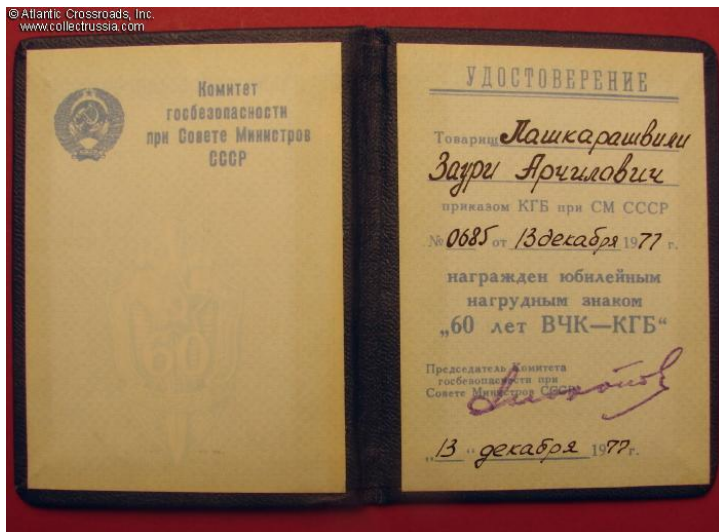 © Atlantic Crossroads, Inc.
www.collectrussia.com
Комитет
госбезопасности
при Совете Министров
СССР
60
УДОСТОВЕРЕНИЕ
Товарищ Лашкарашвили
Заури Арчилович
приказом КГБ при СМ СССР
№ 0685 от 13 декабря 1977 г.
награжден юбилейным
нагрудным знаком
„60 лет ВЧК—КГБ“
Председатель Комитета
госбезопасности при
Совете Министров СССР
„13 “ декабря 1977 г.